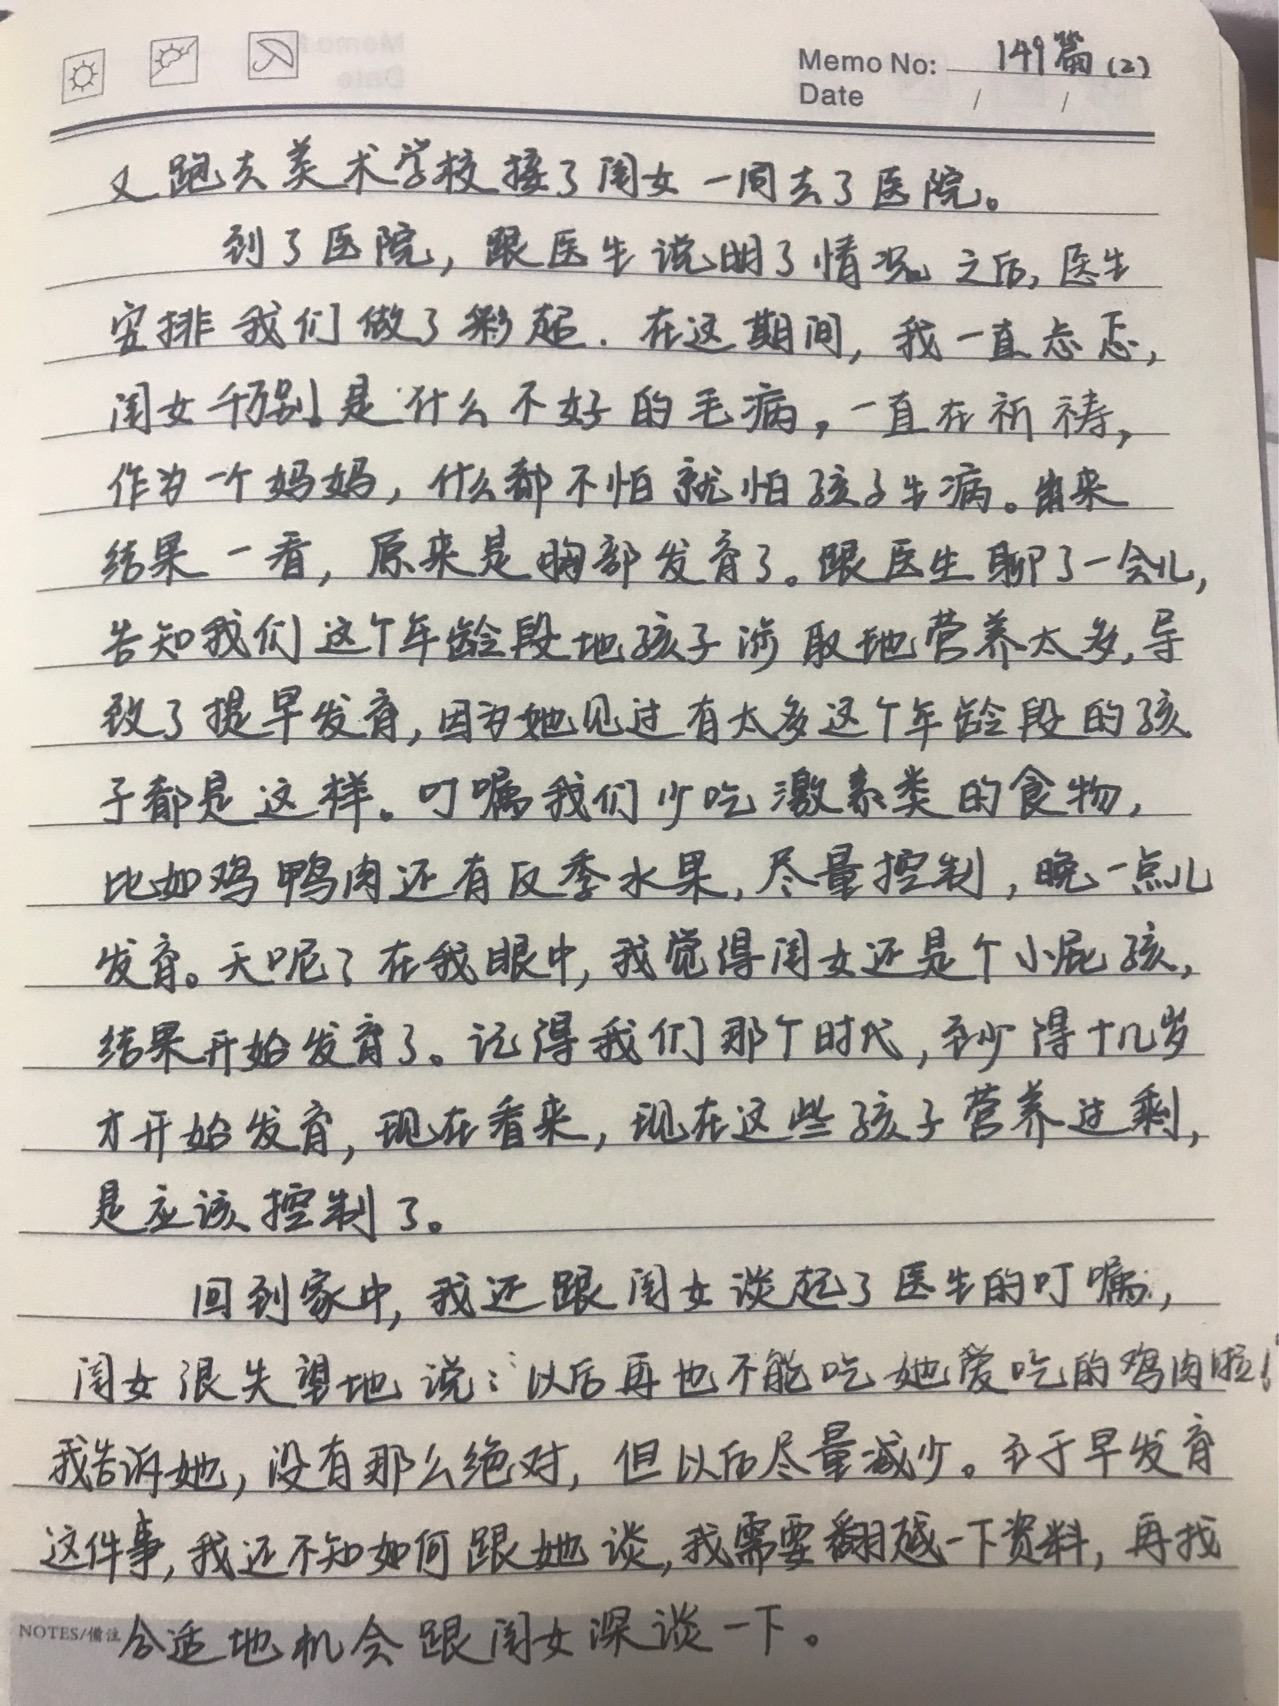 Memo No: 149篇(2)
Date / /
又跑去美术学校接了闺女一同去了医院。
到了医院，跟医生说明了情况。之后，医生
安排我们做了彩超．在这期间，我一直忐忑，
闺女千万别是什么不好的毛病，一直在祈祷，
作为一个妈妈，什么都不怕就怕孩子生病。出来
结果一看，原来是胸部发育了。跟医生聊了一会儿，
告知我们这个年龄段地孩子涉取地营养太多，导
致了提早发育，因为她见过有太多这个年龄段的孩
子都是这样。叮嘱我们少吃激素类的食物，
比如鸡鸭肉还有反季水果，尽量控制，晚一点儿
发育。天呢？在我眼中，我觉得闺女还是个小屁孩，
结果开始发育了。记得我们那个时代，至少得十几岁
才开始发育，现在看来，现在这些孩子营养过剩，
是应该控制了。
回到家中，我还跟闺女谈起了医生的叮嘱，
闺女很失望地说：以后再也不能吃她爱吃的鸡肉啦！
我告诉她，没有那么绝对，但以后尽量减少。至于早发育
这件事，我还不知如何跟她谈，我需要翻越一下资料，再找
NOTES/備注 合适地机会跟闺女深谈一下。